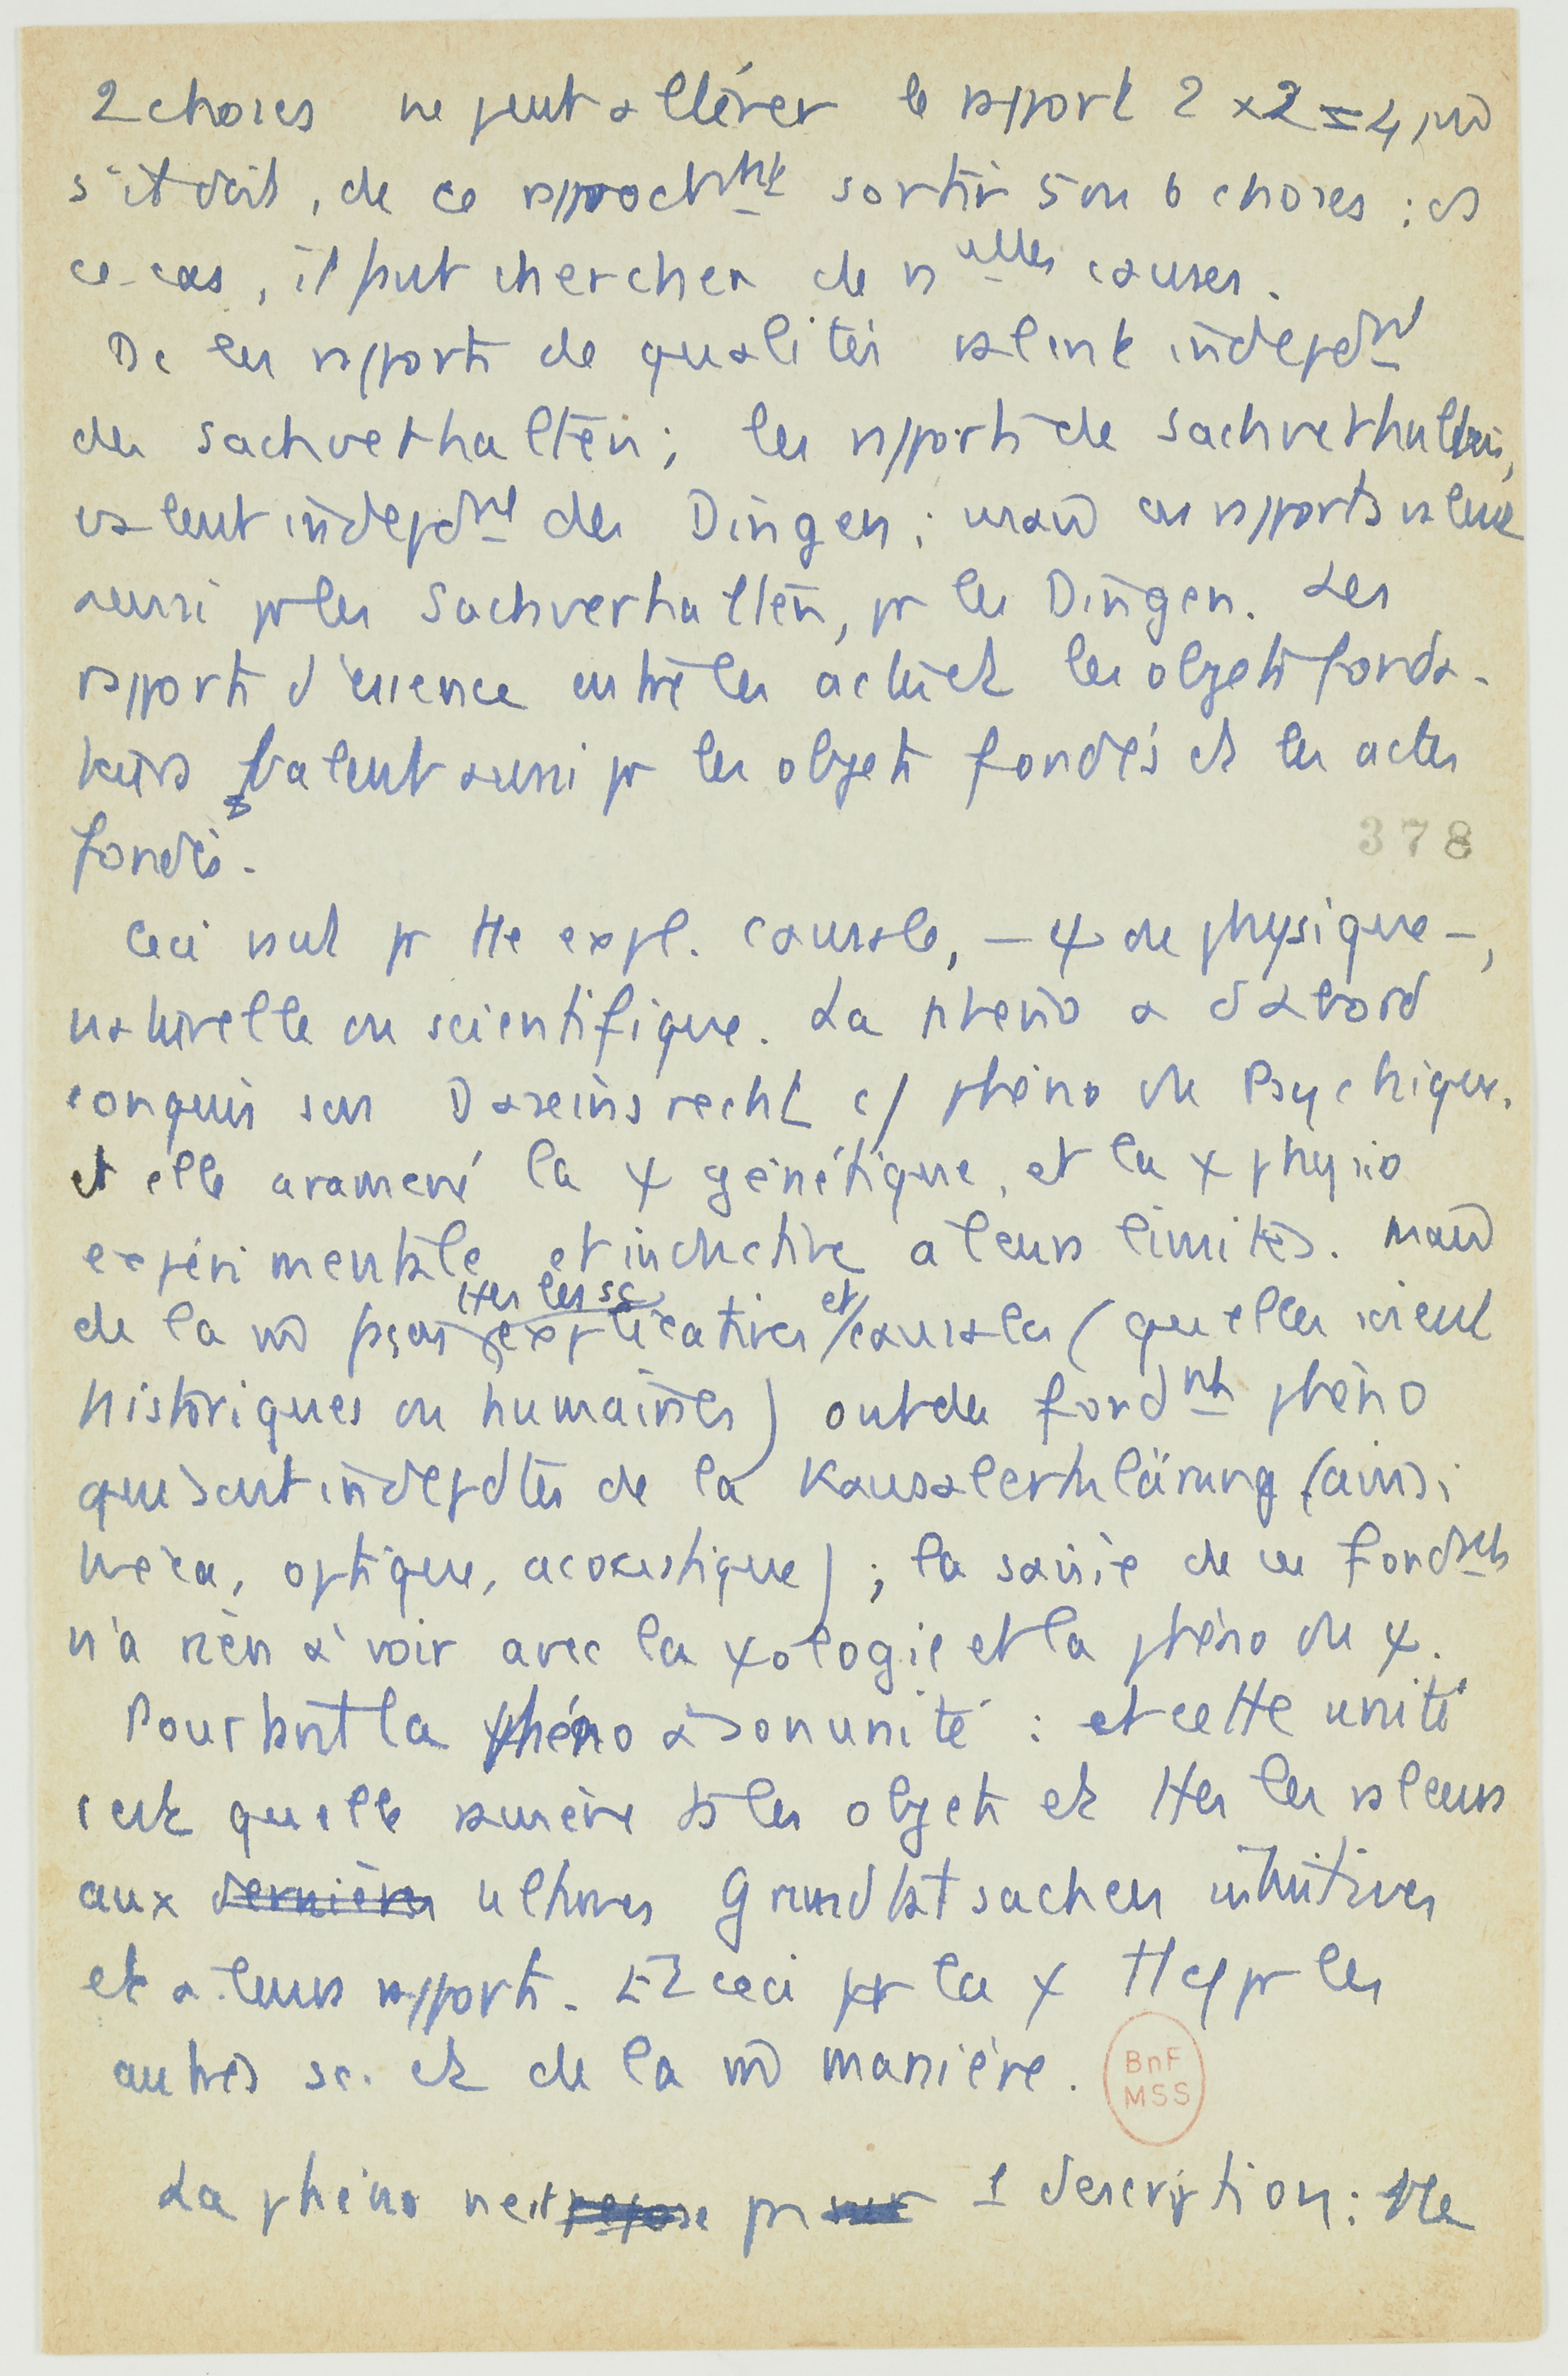 2 choses ne peut altérer le rapport 2 x 2 = 4, mm
s'il doit, de ce rapprochmt sortir 5 ou 6 choses ; ds
ce cas, il faut chercher de nvelles causes.
Dc les rapports de qualités valent indépdmt
des Sachverhalten ; les rapports de Sachverhalten,
valent indépdmt des Dingen ; mais ces rapports valent
aussi pr les Sachverhalten, pr les Dingen. Les
rapports d'essence entre les actes et les objets fonda-
teurs valent aussi pr les objets fondés et les actes
fondés.
378
Ceci vaut pr tte expl. causale, – ψ ou physique –,
naturelle ou scientifique. La phéno a d'abord
conquis son Daseinsrecht c/ phéno du Psychique.
et elle a ramené la ψ génétique, et la ψ physio
expérimentale et inductive à leurs limites. Mais
de la mm façon ttes les sc explicatives et/causales (qu'elles soient
historiques ou humaines) ont des fondmts phéno
qui sont indépdtes de la Kausalerklärung (ainsi
méca, optique, acoustique) ; la saisie de ces fondmts
n'a rien à voir avec la ψologie et la phéno du ψ.
Pourtant la phéno a son unité : et cette unité
c'est qu'elle ramène ts les objets et ttes les valeurs
aux dernières ultimes Grundtatsachen intuitives
et à leurs rapports. Et ceci pr la ψ et pr les
autres sc. et de la mm manière.
BnF
MSS
La phéno n'est repose pas sur 1 description : tte